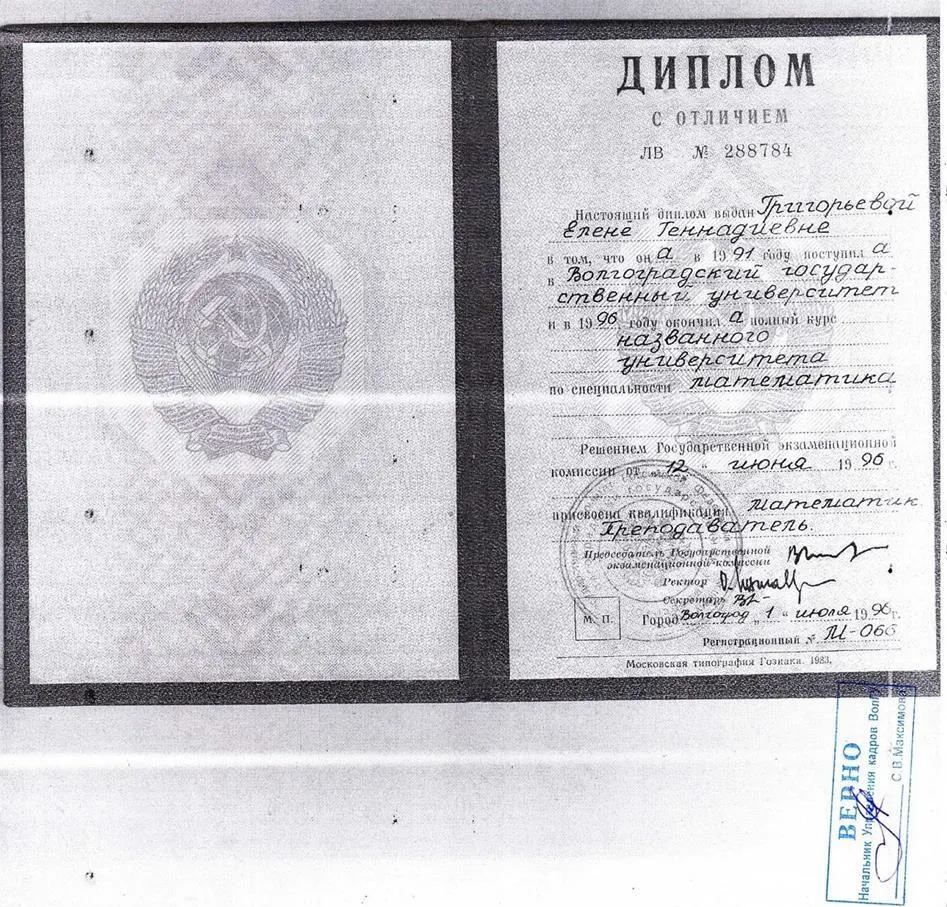 ДИПЛОМ
С ОТЛИЧИЕМ
ЛВ № 288784
Настоящий диплом выдан Григорьевой
Елене Геннадиевне
в том, что он а в 1991 году поступил а
в Волгоградский государ-
ственный университет
и в 1996 году окончил а полный курс
названного
университета
по специальности математика
Решением Государственной экзаменационной
комиссии от " 12 " июня 1996 г.
присвоена квалификация математик
Преподаватель.
Председатель Государственной
экзаменационной комиссии
Ректор
Секретарь
М. П.
Город Волгоград " 1 " июля 1996 г.
Регистрационный № Ш-066
Московская типография Гознака. 1983.
ВЕРНО
Начальник Управления кадров ВолГУ
С.В.Максимова